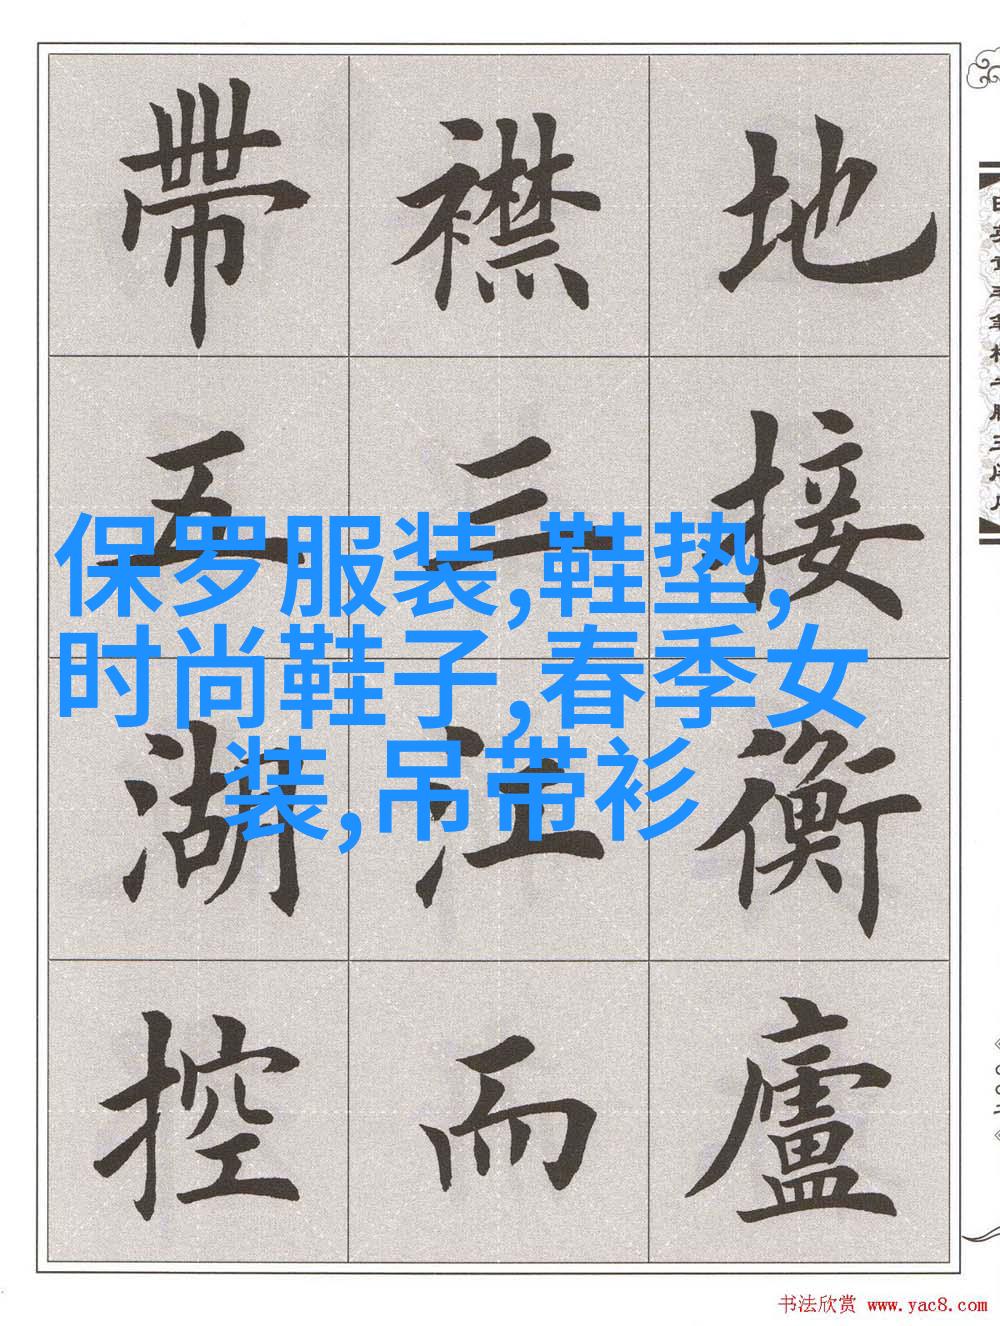 地接衡廬
襟三江而
帶五湖控
保罗服装,鞋垫,
时尚鞋子,春季女
装,吊带衫
书法欣赏 www.yac8.com